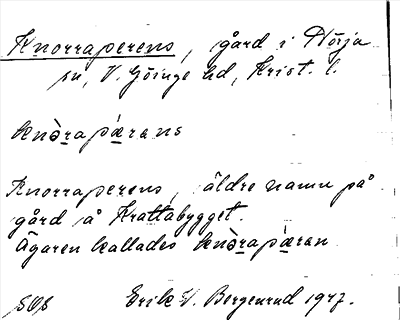 Knorraperens, gård i Nörja
sn, V. Göinge hd, Krist. l.
knòrapǽrens
Knorraperens, äldre namn på
gård å Krattabygget.
Ägaren kallades knòrapǽren
Erik V. Bergenrud 1947.